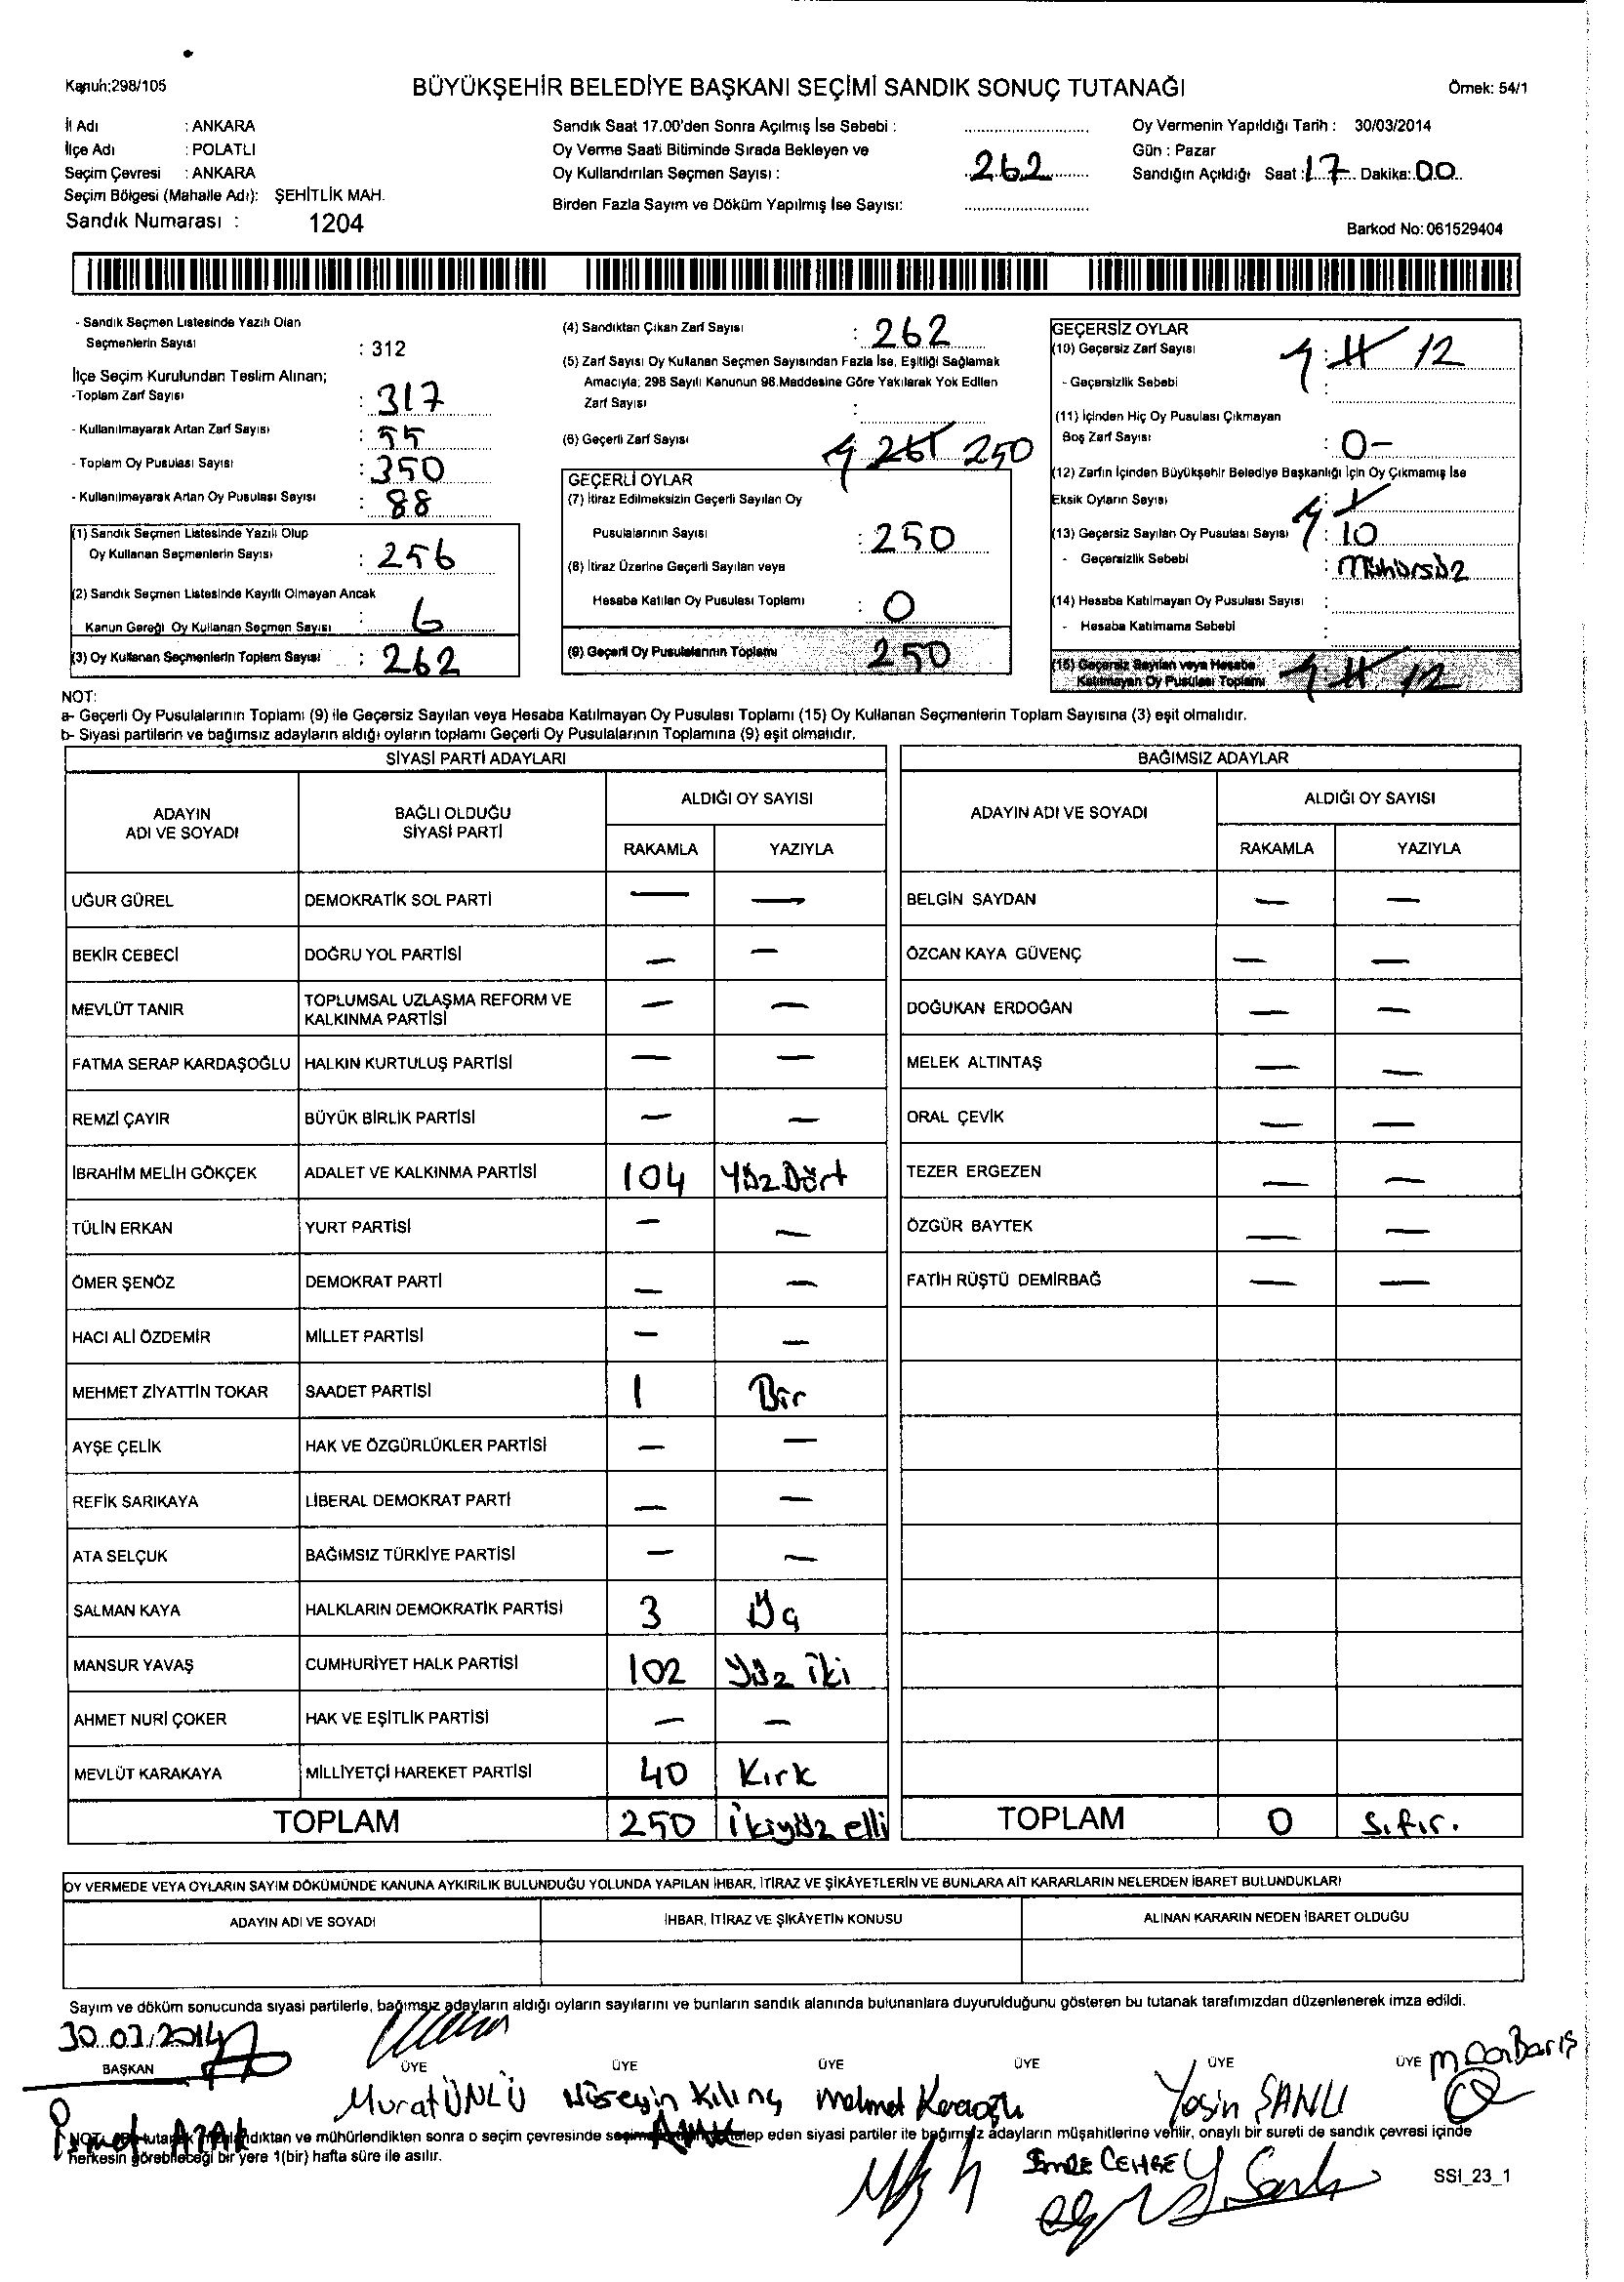 Kanun:298/105
BÜYÜKŞEHİR BELEDİYE BAŞKANI SEÇİMİ SANDIK SONUÇ TUTANAĞI
Örnek: 54/1
İl Adı : ANKARA
İlçe Adı : POLATLI
Seçim Çevresi : ANKARA
Seçim Bölgesi (Mahalle Adı): ŞEHİTLİK MAH.
Sandık Numarası : 1204
Sandık Saat 17.00'den Sonra Açılmış İse Sebebi :
Oy Verme Saati Bitiminde Sırada Bekleyen ve
Oy Kullandırılan Seçmen Sayısı : 262
Birden Fazla Sayım ve Döküm Yapılmış İse Sayısı:
Oy Vermenin Yapıldığı Tarih : 30/03/2014
Gün : Pazar
Sandığın Açıldığı Saat : 17 Dakika: 00
Barkod No: 061529404
- Sandık Seçmen Listesinde Yazılı Olan
Seçmenlerin Sayısı : 312
İlçe Seçim Kurulundan Teslim Alınan;
-Toplam Zarf Sayısı : 317
- Kullanılmayarak Artan Zarf Sayısı : 55
- Toplam Oy Pusulası Sayısı : 350
- Kullanılmayarak Artan Oy Pusulası Sayısı : 88
(1) Sandık Seçmen Listesinde Yazılı Olup
Oy Kullanan Seçmenlerin Sayısı : 256
(2) Sandık Seçmen Listesinde Kayıtlı Olmayan Ancak
Kanun Gereği Oy Kullanan Seçmen Sayısı : 6
(3) Oy Kullanan Seçmenlerin Toplam Sayısı : 262
(4) Sandıktan Çıkan Zarf Sayısı : 262
(5) Zarf Sayısı Oy Kullanan Seçmen Sayısından Fazla İse, Eşitliği Sağlamak
Amacıyla; 298 Sayılı Kanunun 98.Maddesine Göre Yakılarak Yok Edilen
Zarf Sayısı :
(6) Geçerli Zarf Sayısı 250
GEÇERLİ OYLAR
(7) İtiraz Edilmeksizin Geçerli Sayılan Oy
Pusulalarının Sayısı : 250
(8) İtiraz Üzerine Geçerli Sayılan veya
Hesaba Katılan Oy Pusulası Toplamı : 0
(9) Geçerli Oy Pusulalarının Toplamı 250
GEÇERSİZ OYLAR
(10) Geçersiz Zarf Sayısı : 12
- Geçersizlik Sebebi :
(11) İçinden Hiç Oy Pusulası Çıkmayan
Boş Zarf Sayısı : 0-
(12) Zarfın İçinden Büyükşehir Belediye Başkanlığı İçin Oy Çıkmamış İse
Eksik Oyların Sayısı :
(13) Geçersiz Sayılan Oy Pusulası Sayısı : 10
- Geçersizlik Sebebi : Mühürsüz
(14) Hesaba Katılmayan Oy Pusulası Sayısı :
- Hesaba Katılmama Sebebi :
(15) Geçersiz Sayılan veya Hesaba
Katılmayan Oy Pusulası Toplamı 12
NOT:
a- Geçerli Oy Pusulalarının Toplamı (9) ile Geçersiz Sayılan veya Hesaba Katılmayan Oy Pusulası Toplamı (15) Oy Kullanan Seçmenlerin Toplam Sayısına (3) eşit olmalıdır.
b- Siyasi partilerin ve bağımsız adayların aldığı oyların toplamı Geçerli Oy Pusulalarının Toplamına (9) eşit olmalıdır.
SİYASİ PARTİ ADAYLARI
ADAYIN ADI VE SOYADI BAĞLI OLDUĞU SİYASİ PARTİ ALDIĞI OY SAYISI
RAKAMLA YAZIYLA
UĞUR GÜREL DEMOKRATİK SOL PARTİ — —
BEKİR CEBECİ DOĞRU YOL PARTİSİ — —
MEVLÜT TANIR TOPLUMSAL UZLAŞMA REFORM VE KALKINMA PARTİSİ — —
FATMA SERAP KARDAŞOĞLU HALKIN KURTULUŞ PARTİSİ — —
REMZİ ÇAYIR BÜYÜK BİRLİK PARTİSİ — —
İBRAHİM MELİH GÖKÇEK ADALET VE KALKINMA PARTİSİ 104 Yüz Dört
TÜLİN ERKAN YURT PARTİSİ — —
ÖMER ŞENÖZ DEMOKRAT PARTİ — —
HACI ALİ ÖZDEMİR MİLLET PARTİSİ — —
MEHMET ZİYATTİN TOKAR SAADET PARTİSİ 1 Bir
AYŞE ÇELİK HAK VE ÖZGÜRLÜKLER PARTİSİ — —
REFİK SARIKAYA LİBERAL DEMOKRAT PARTİ — —
ATA SELÇUK BAĞIMSIZ TÜRKİYE PARTİSİ — —
SALMAN KAYA HALKLARIN DEMOKRATİK PARTİSİ 3 Üç
MANSUR YAVAŞ CUMHURİYET HALK PARTİSİ 102 Yüz iki
AHMET NURİ ÇOKER HAK VE EŞİTLİK PARTİSİ — —
MEVLÜT KARAKAYA MİLLİYETÇİ HAREKET PARTİSİ 40 Kırk
TOPLAM 250 ikiyüz elli
BAĞIMSIZ ADAYLAR
ADAYIN ADI VE SOYADI ALDIĞI OY SAYISI
RAKAMLA YAZIYLA
BELGİN SAYDAN — —
ÖZCAN KAYA GÜVENÇ — —
DOĞUKAN ERDOĞAN — —
MELEK ALTINTAŞ — —
ORAL ÇEVİK — —
TEZER ERGEZEN — —
ÖZGÜR BAYTEK — —
FATİH RÜŞTÜ DEMİRBAĞ — —
TOPLAM 0 Sıfır.
OY VERMEDE VEYA OYLARIN SAYIM DÖKÜMÜNDE KANUNA AYKIRILIK BULUNDUĞU YOLUNDA YAPILAN İHBAR, İTİRAZ VE ŞİKÂYETLERİN VE BUNLARA AİT KARARLARIN NELERDEN İBARET BULUNDUKLARI
ADAYIN ADI VE SOYADI İHBAR, İTİRAZ VE ŞİKÂYETİN KONUSU ALINAN KARARIN NEDEN İBARET OLDUĞU
Sayım ve döküm sonucunda siyasi partilerle, bağımsız adayların aldığı oyların sayılarını ve bunların sandık alanında bulunanlara duyurulduğunu gösteren bu tutanak tarafımızdan düzenlenerek imza edildi.
30.03.2014
BAŞKAN ÜYE ÜYE ÜYE ÜYE ÜYE ÜYE
Murat ÜNLÜ Hüseyin Kılınç Yasin ŞANLI
NOT: tutanak dıktan ve mühürlendikten sonra o seçim çevresinde talep eden siyasi partiler ile bağımsız adayların müşahitlerine verilir, onaylı bir sureti de sandık çevresi içinde
herkesin görebileceği bir yere 1(bir) hafta süre ile asılır.
SSI_23_1